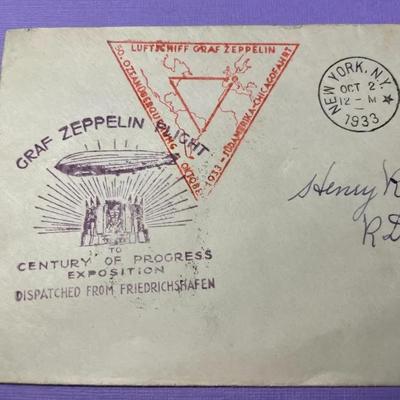 LUFTSCHIFF GRAF ZEPPELIN
50. OZEANÜBERQUERUNG OKTOBER
1933 - SÜDAMERIKA-CHICAGOFAHRT
NEW YORK, N.Y.
OCT 2
12-M
1933
GRAF ZEPPELIN FLIGHT
TO
CENTURY OF PROGRESS
EXPOSITION
DISPATCHED FROM FRIEDRICHSHAFEN
Henry R
R.D